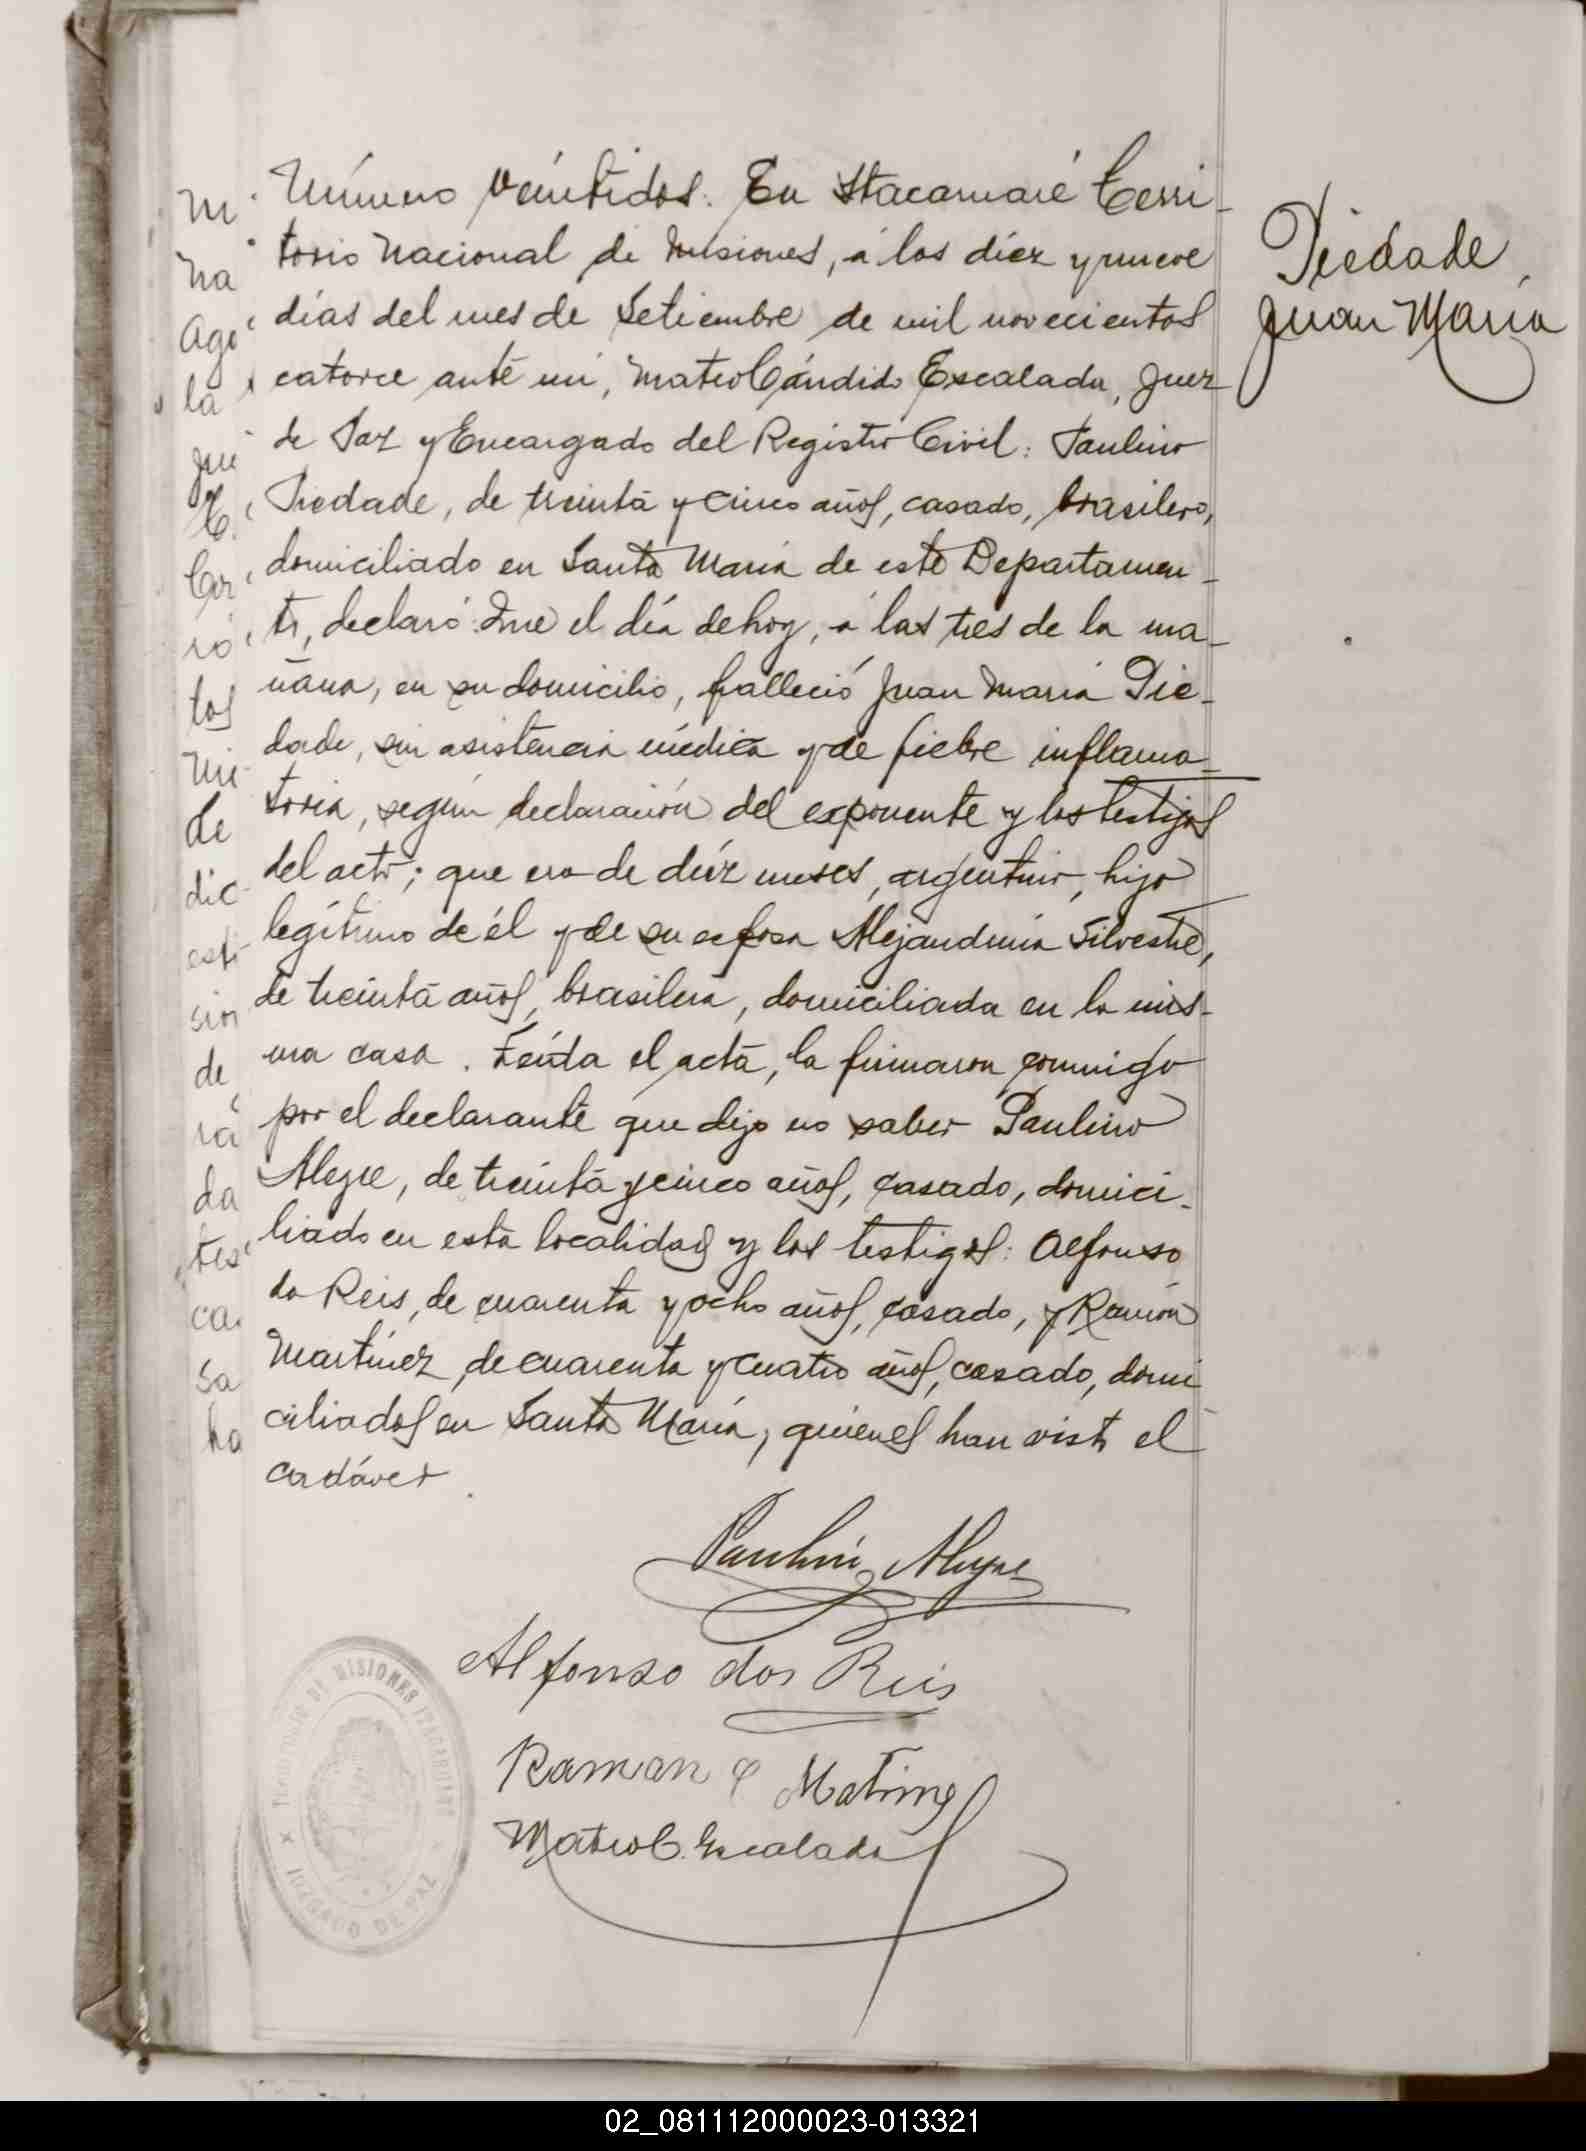 Número veintidos. En Itacaruaré Terri-
torio Nacional de Misiones, á los diez y nueve
días del mes de Setiembre de mil novecientos
catorce ante mí, Mateo Cándido Escalada, Juez
de Paz y Encargado del Registro Civil: Paulino
Piedade, de treinta y cinco años, casado, brasilero,
domiciliado en Santa María de este Departamen-
to, declaró: Que el día de hoy, á las tres de la ma-
ñana, en su domicilio, falleció Juan María Pie-
dade, sin asistencia médica y de fiebre inflama-
toria, según declaración del exponente y los testigos
del acto; que era de diez meses, argentino, hijo
legítimo de él y de su esposa Alejandrina Silvestre,
de treinta años, brasilera, domiciliada en la mis-
ma casa. Leída el acta, la firmaron conmigo
por el declarante que dijo no saber Paulino
Alegre, de treinta y cinco años, casado, domici-
liado en esta localidad y los testigos: Alfonso
do Reis, de cuarenta y ocho años, casado, y Ramón
Martínez, de cuarenta y cuatro años, casado, domi
ciliados en Santa María, quienes han visto el
cadáver.
Piedade,
Juan María
Paulino Alegre
Alfonso dos Reis
Raman Matine
Mateo C. Escalada
TERRITORIO DE MISIONES ITACARUARE
JUZGADO DE PAZ
m
na
Ago
la
Jue
Cor
ró
tos
Mi
de
dic-
esti
sion
de
rá
da
tes
ca
Sa
ha
02_081112000023-013321